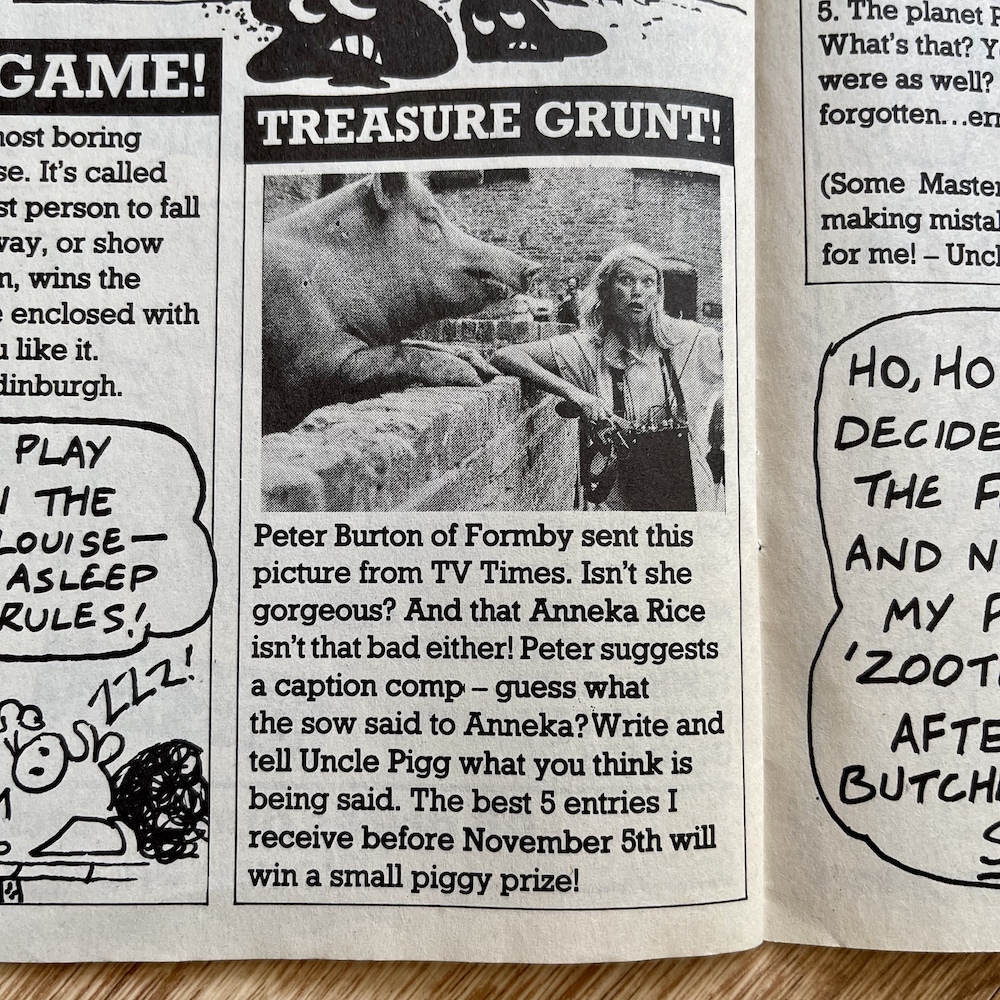 GAME!
most boring
It's called
person to fall
or show
wins the
enclosed with
like it.
PLAY
THE
LOUISE—
ASLEEP
RULES!
ZZZ!
TREASURE GRUNT!
Peter Burton of Formby sent this
picture from TV Times. Isn't she
gorgeous? And that Anneka Rice
isn't that bad either! Peter suggests
a caption comp – guess what
the sow said to Anneka? Write and
tell Uncle Pigg what you think is
being said. The best 5 entries I
receive before November 5th will
win a small piggy prize!
5. The planet
What's that?
were as well?
forgotten...
(Some
making
for me! –
HO, HO
THE
AND
MY